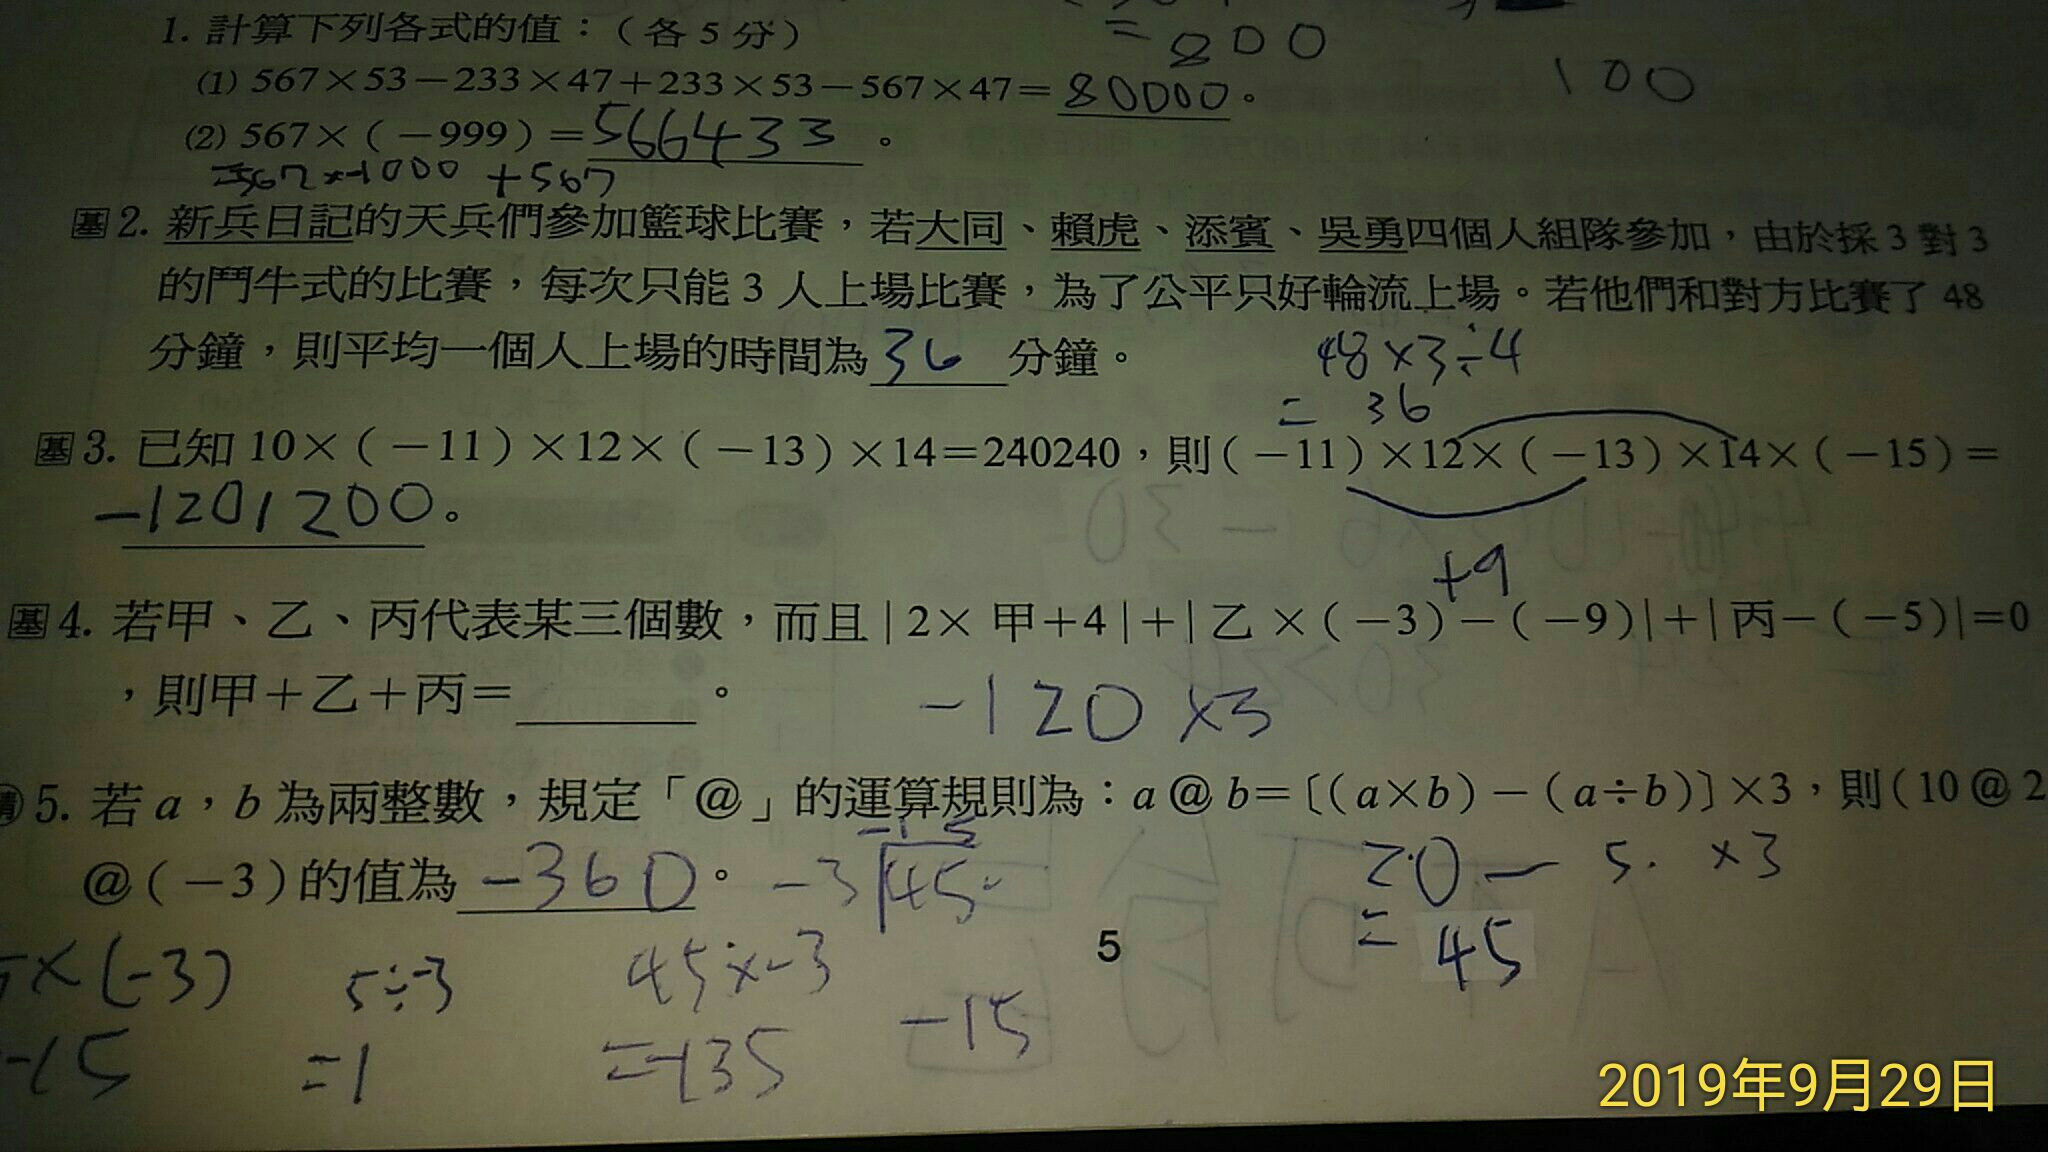 = 800
100
1. 計算下列各式的值：（各5分）
(1) 567×53－233×47＋233×53－567×47＝80000。
(2) 567×（－999）＝566433。
=567×-1000 +567
基2. 新兵日記的天兵們參加籃球比賽，若大同、賴虎、添賓、吳勇四個人組隊參加，由於採3對3
的鬥牛式的比賽，每次只能3人上場比賽，為了公平只好輪流上場。若他們和對方比賽了48
分鐘，則平均一個人上場的時間為36分鐘。
48×3÷4
= 36
基3. 已知10×（－11）×12×（－13）×14＝240240，則（－11）×12×（－13）×14×（－15）＝
-1201200。
+9
基4. 若甲、乙、丙代表某三個數，而且|2×甲＋4|＋|乙×（－3）－（－9）|＋|丙－（－5）|＝0
，則甲＋乙＋丙＝＿＿＿。
-120×3
5. 若a，b為兩整數，規定「@」的運算規則為：a@b＝〔（a×b）－（a÷b）〕×3，則（10@2
@（－3）的值為-360。
-15
-3 45
20－5 ×3
= 45
×(-3)
-15
5÷-3
=1
45×-3
=-135
-15
5
2019年9月29日